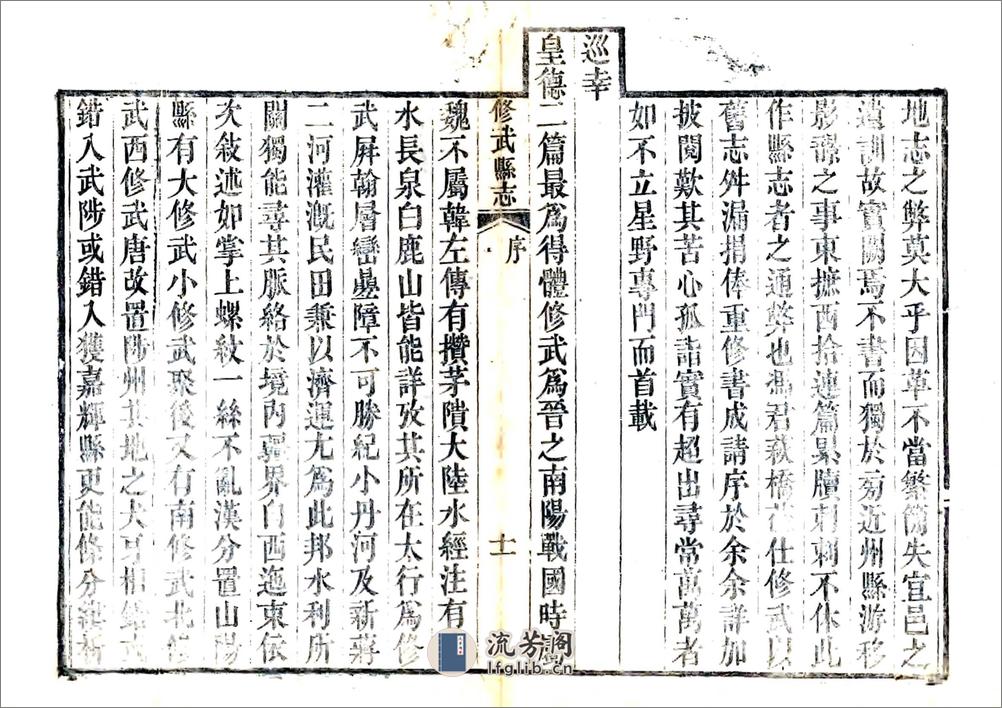 地志之弊莫大乎因革不當繁簡失宜邑之
遺訓故實闕焉不書而獨於旁近州縣游移
影響之事東摭西拾連篇累牘刺刺不休此
作縣志者之通弊也馮君萩橋 仕修武以
舊志舛漏捐俸重修書成請序於余余詳加
披閱歎其苦心孤詣實有超出尋常萬萬者
如不立星野專門而首載
巡幸
皇德二篇最為得體修武為晉之南陽戰國時
修武縣志 序 十一
魏不屬韓左傳有攢茅隤大陸水經注有
水長泉白鹿山皆能詳攷其所在太行為修
武屏翰層巒疊障不可勝紀小丹河及新蔣
二河灌溉民田兼以濟運尤為此邦水利所
關獨能尋其脈絡於境內疆界自西迤東依
次敘述如掌上螺紋一絲不亂漢分置山陽
縣有大修武小修武聚後又有南修武北修
武西修武唐故置陟州其地之犬牙相錯
錯入武陟或錯入獲嘉輝縣更能條分縷析
流芳阁
lfglib.cn